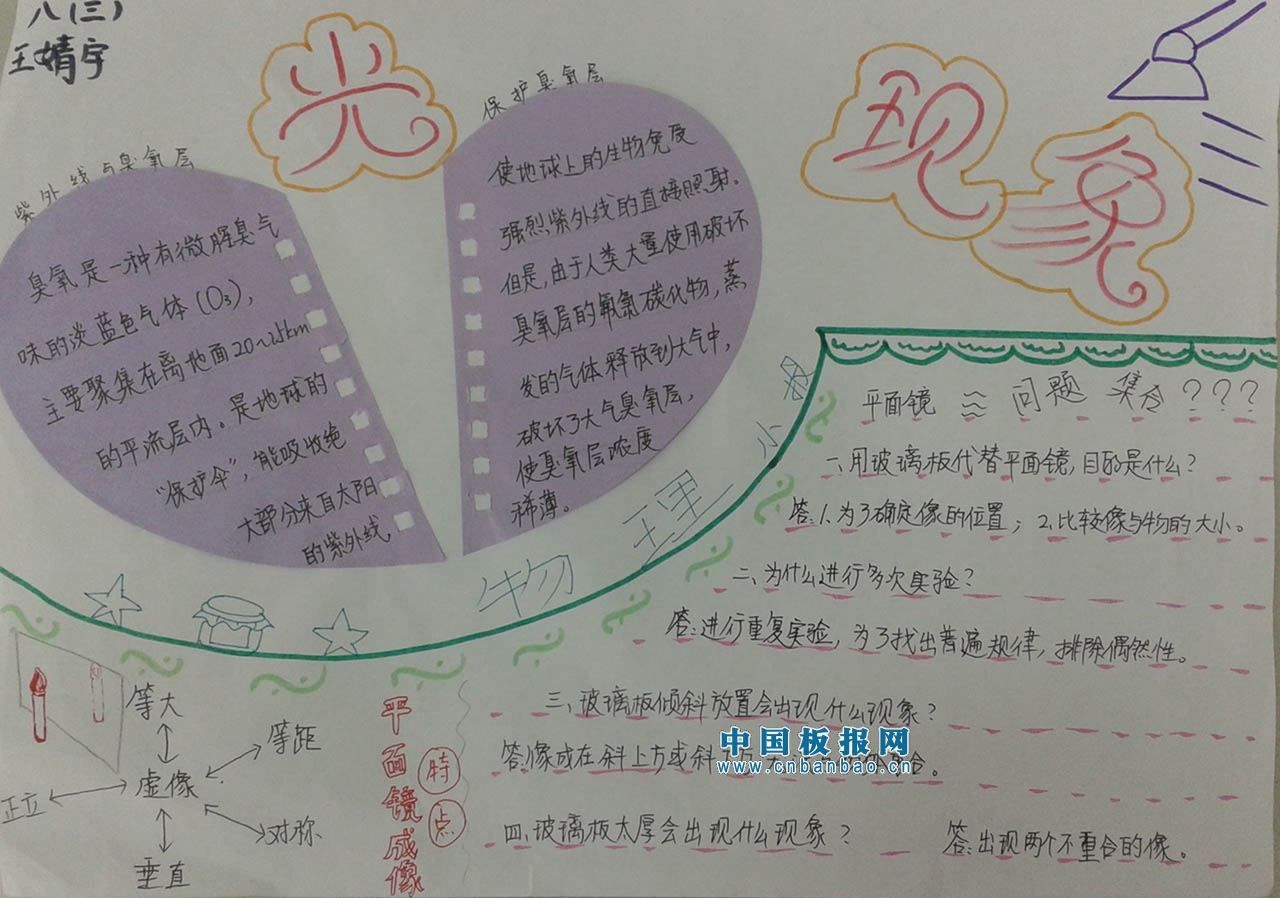 八(三)
王婧宇
光
现象
紫外线与臭氧层
臭氧是一种有微腥臭气
味的淡蓝色气体(O₃),
主要聚集在离地面20~25km
的平流层内。是地球的
“保护伞”,能吸收绝
大部分来自太阳
的紫外线
保护臭氧层
使地球上的生物免受
强烈紫外线的直接照射。
但是,由于人类大量使用破坏
臭氧层的氟氯碳化物,蒸
发的气体释放到大气中,
破坏了大气臭氧层,
使臭氧层浓度
稀薄。
物理小报
平面镜 ≈ 问题集合???
一、用玻璃板代替平面镜,目的是什么?
答:1.为了确定像的位置;2.比较像与物的大小。
二、为什么进行多次实验?
答:进行重复实验,为了找出普遍规律,排除偶然性。
三、玻璃板倾斜放置会出现什么现象?
答:像成在斜上方或斜下方 合。
四、玻璃板太厚会出现什么现象?
答:出现两个不重合的像。
平面镜成像
特点
等大
等距
正立
虚像
对称
垂直
中国板报网
www.cnbanbao.cn